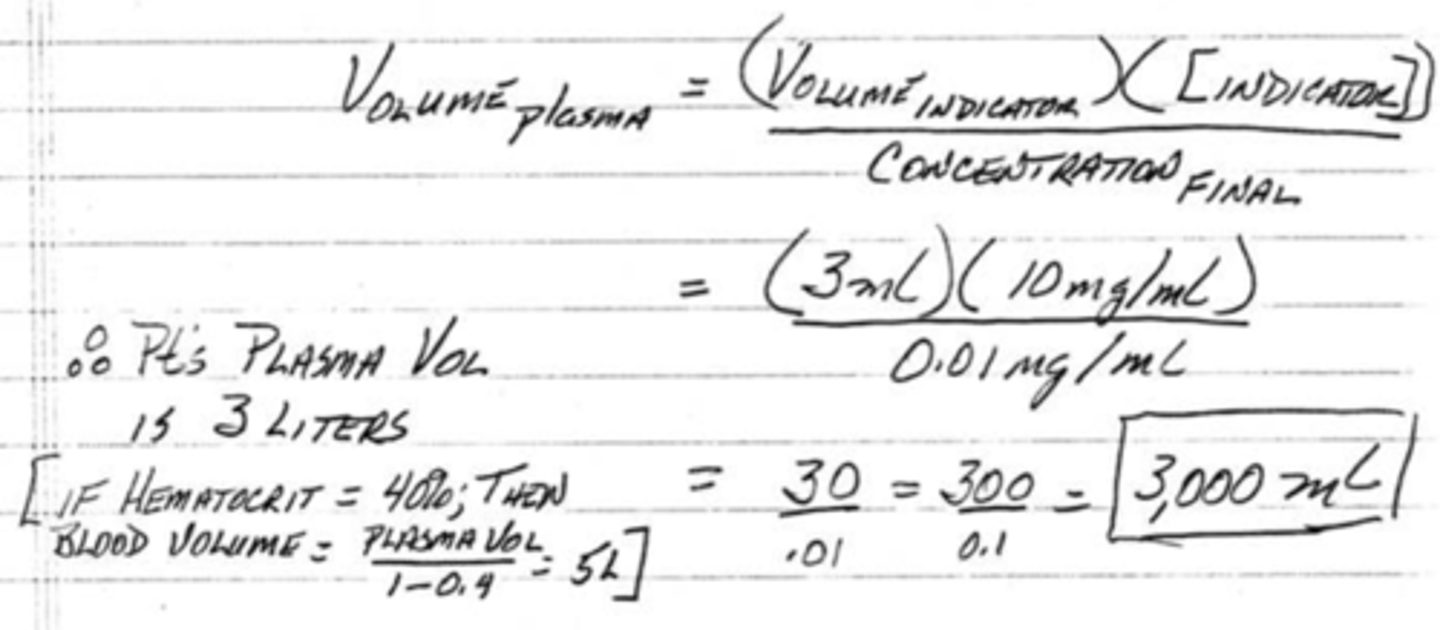 VOLUME plasma = (VOLUME INDICATOR)([INDICATOR])
CONCENTRATION FINAL
= (3mL)(10mg/mL)
0.01mg/mL
∴ Pt's PLASMA VOL
IS 3 LITERS
[IF HEMATOCRIT = 40%; THEN
BLOOD VOLUME = PLASMA VOL = 5L]
1-0.4
= 30 = 300 = 3,000 mL
.01 0.1